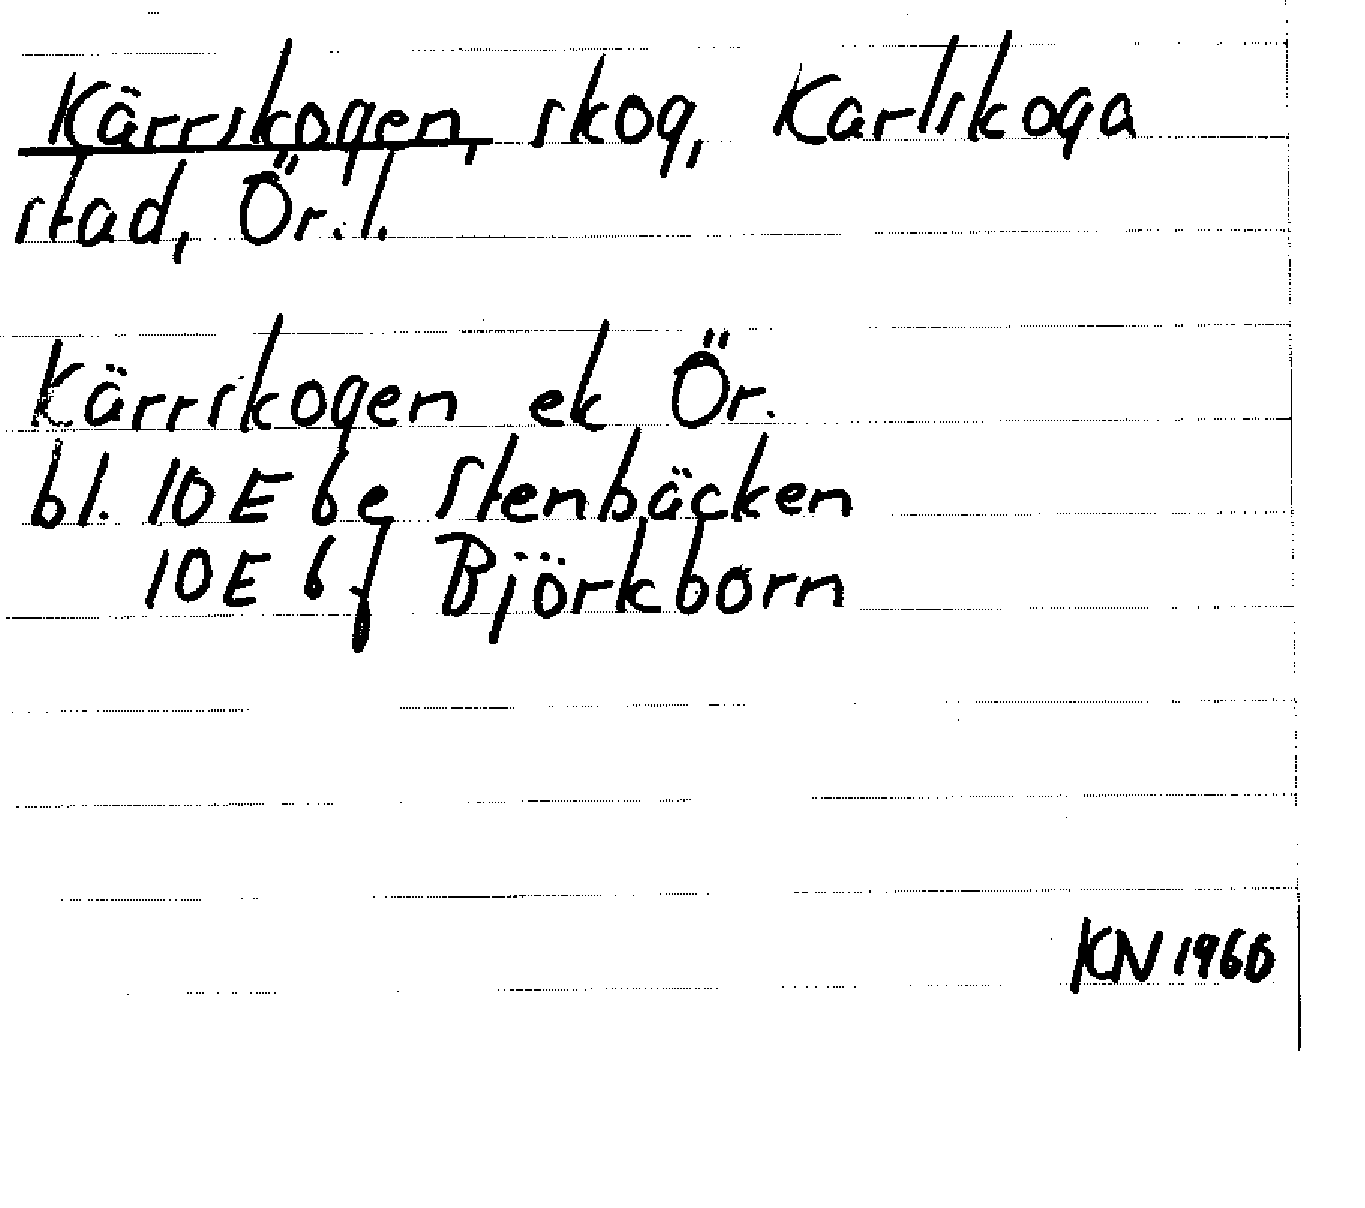 Kärrskogen, skog, Karlskoga
stad, Ör. l.
Kärrskogen ek Ör.
bl. 10 E 6e Stenbäcken
10 E 6f Björkborn
KN 1960